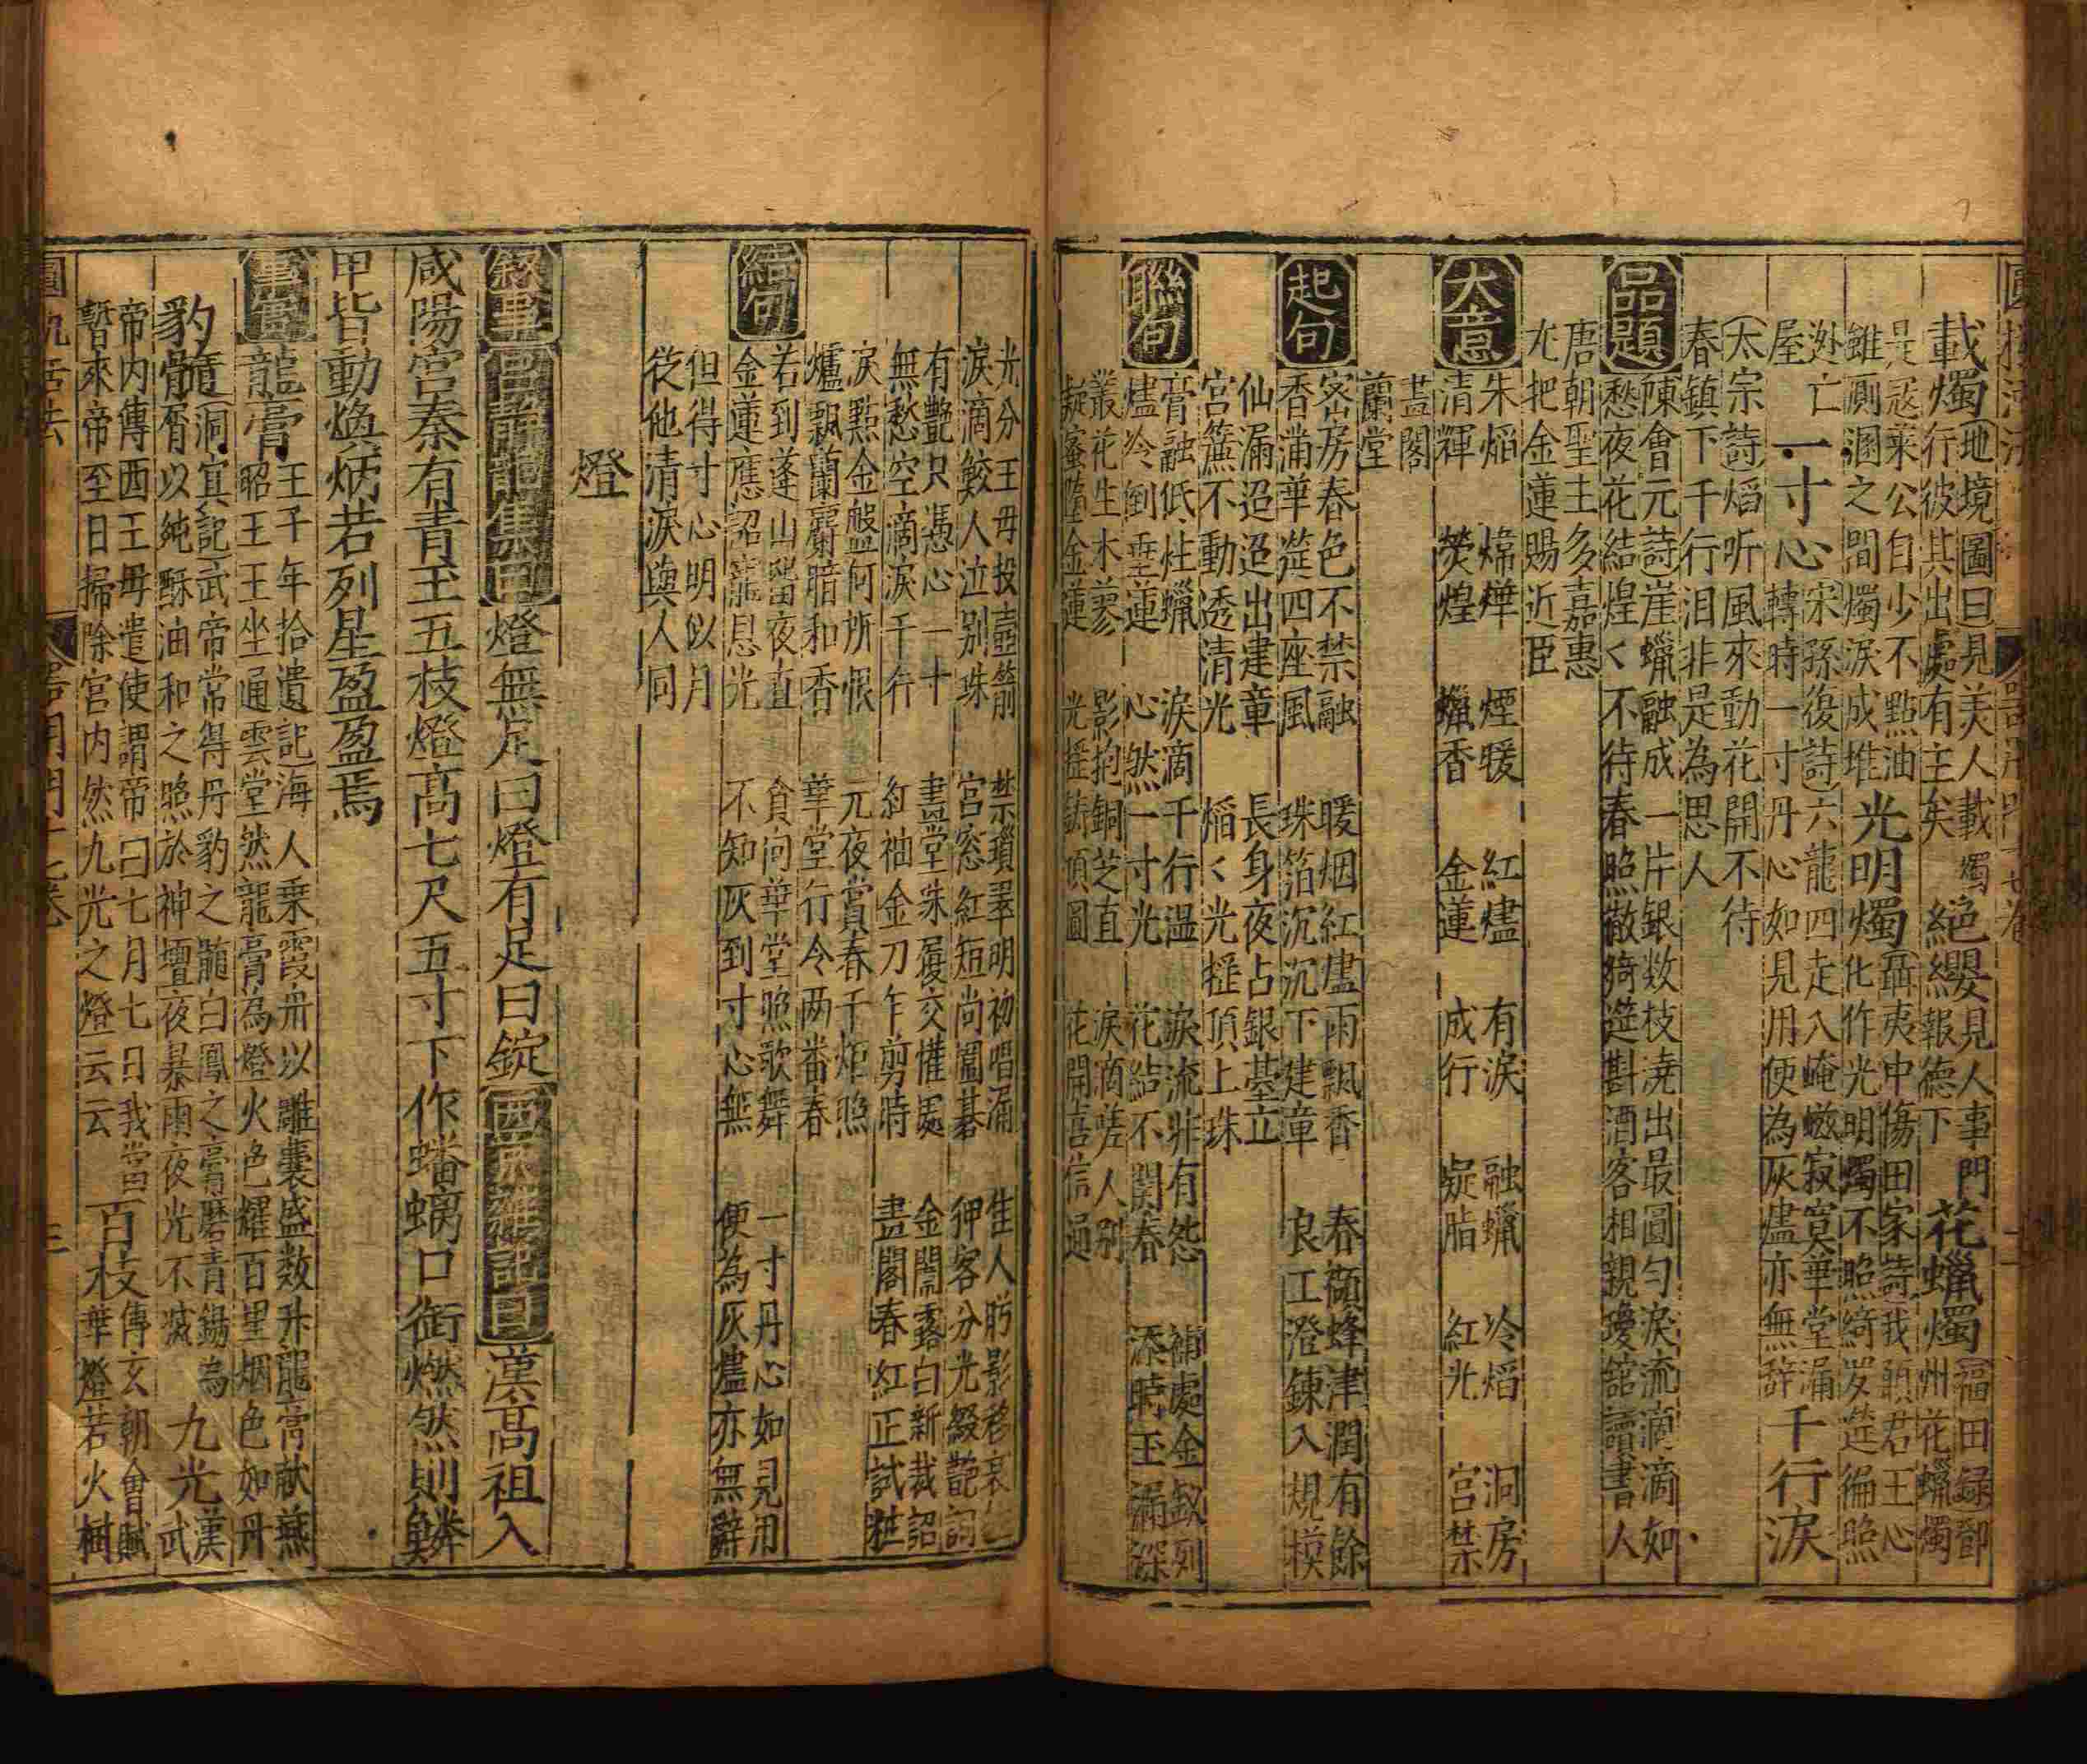 載燭
地境圖曰見美人載燭
行彼其出處有主矣
絕纓
見人事門
報德下
花蠟燭
福田録鄧
州花蠟燭
是寇萊公自少不點油
雖厠溷之間燭淚成堆
光明燭
聶夷中傷田家詩我願君王心
化作光明燭不照綺罗筵徧照
迯亡
屋
一寸心
宋孫後詩六龍四走入崦嵫寂寞華堂漏
轉時一寸丹心如見用便為灰燼亦無辞
千行淚
太宗詩熖听風來動花開不待
春鎮下千行泪非是為思人
品題
陳會元詩崖蠟融成一片銀数枝澆出最圓勻淚流滴滴如
愁夜花結煌〱不待春照散綺筵斟酒客相親瓊舘讀書人
唐朝聖主多嘉惠
尤把金蓮賜近臣
大意
朱熖 煒燁 煙暖 紅燼 有淚 融蠟 冷熖 洞房
清輝 熒煌 蠟香 金蓮 成行 凝脂 紅光 宮禁
畵閣
蘭堂
起句
宻房春色不禁融 暖烟紅燼雨飄香 春額蜂津潤有餘
香滿華筵四座風 珠箔沉沉下建章 良工澄鍊入規模
仙漏迢迢出建章 長身夜占銀臺立
宮簾不動透清光 熖〱光揺頂上珠
聯句
膏融低炷蠟 淚滴千行温 淚流非有怨 補處金釵列
燼冷倒垂蓮 心然一寸光 花結不関春 添時玉漏深
叢花生木蓼 影抱銅芝直 淚滴嗟人别
凝蜜墮金蓮 光揺鑄頂圓 花開喜信通
光分王母投壺箭 禁瑣翠明初唱漏 隹人影移
淚滴鮫人泣别珠 宮窓紅短尚圍碁 狎客分光綴艶詞
有艶只憑心一寸 畵堂朱履交懽處 金閨露白新裁詔
無愁空滴淚千行 紅袖金刀乍剪時 畵閣春紅正試粧
淚點金盤何所恨 元夜賞春千炬照
爐飄蘭麝暗和香 華堂行令两番春
結句
若到蓬山留夜直 貪向華堂照歌舞 一寸丹心如見用
金蓮應詔寵恩光 不知灰到寸心無 便為灰燼亦無辭
但得寸心明似月
從他清淚與人同
燈
敘事
燈無足曰燈有足曰錠
漢高祖入
咸陽宮秦有青玉五枝燈高七尺五寸下作蟠螭口銜燃然則鱗
甲皆動煥炳若列星盈盈焉
事實
龍膏
王子年拾遺記海人乗霞舟以雕囊盛数升龍膏献燕
昭王王坐通雲堂然龍膏為燈火色耀百里烟色如丹
豹髓
洞冥記武帝常得丹豹之髓白鳳之膏磨青錫為
骨以純酥油和之照於神壇夜暴雨夜光不滅
九光
漢
武
帝内傳西王母遣使謂帝曰七月七日我當
暫來帝至日掃除宮内然九光之燈云云
百枝
傅玄朝會賦
華燈若火樹